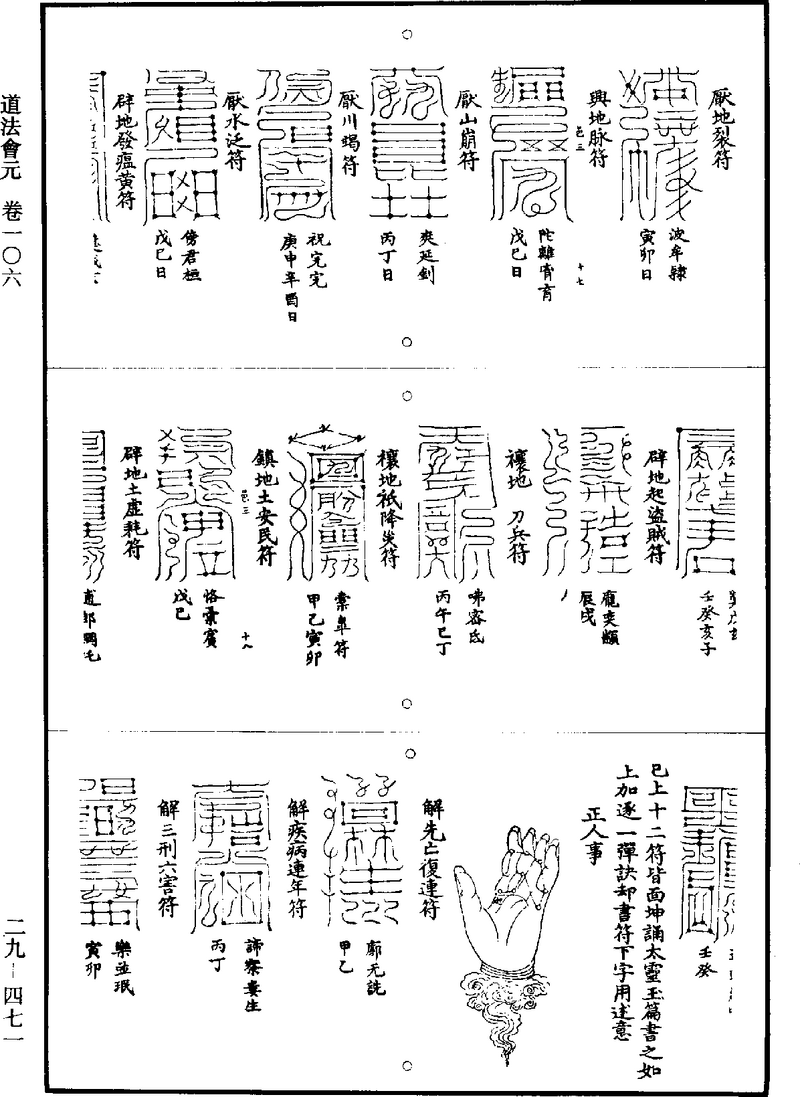 道法會元　卷一〇六
二九—四七一
厭地裂符
波牟隷
寅卯日
興地脉符
陀雜宵育
戊巳日
十七
厭山崩符
爽延釗
丙丁日
厭川竭符
祝完完
庚申辛酉日
厭水泛符
傍君桓
戊巳日
辟地發瘟黃符
壬癸亥子
辟地起盜賊符
龐奕㒹
辰戌
禳地　刀兵符
咈容氐
丙午巳丁
禳地祇降災符
橐皐符
甲乙寅卯
鎮地土安民符
十八
恪橐賓
戊巳
辟地土虛耗符
壬癸
已上十二符皆面坤誦太靈玉篇書之如
上加逐一彈訣却書符下字用述意
正人事
解先亡復連符
廓无詵
甲乙
解疾病連年符
諦寮婁生
丙丁
解三刑六害符
樂並珉
寅卯